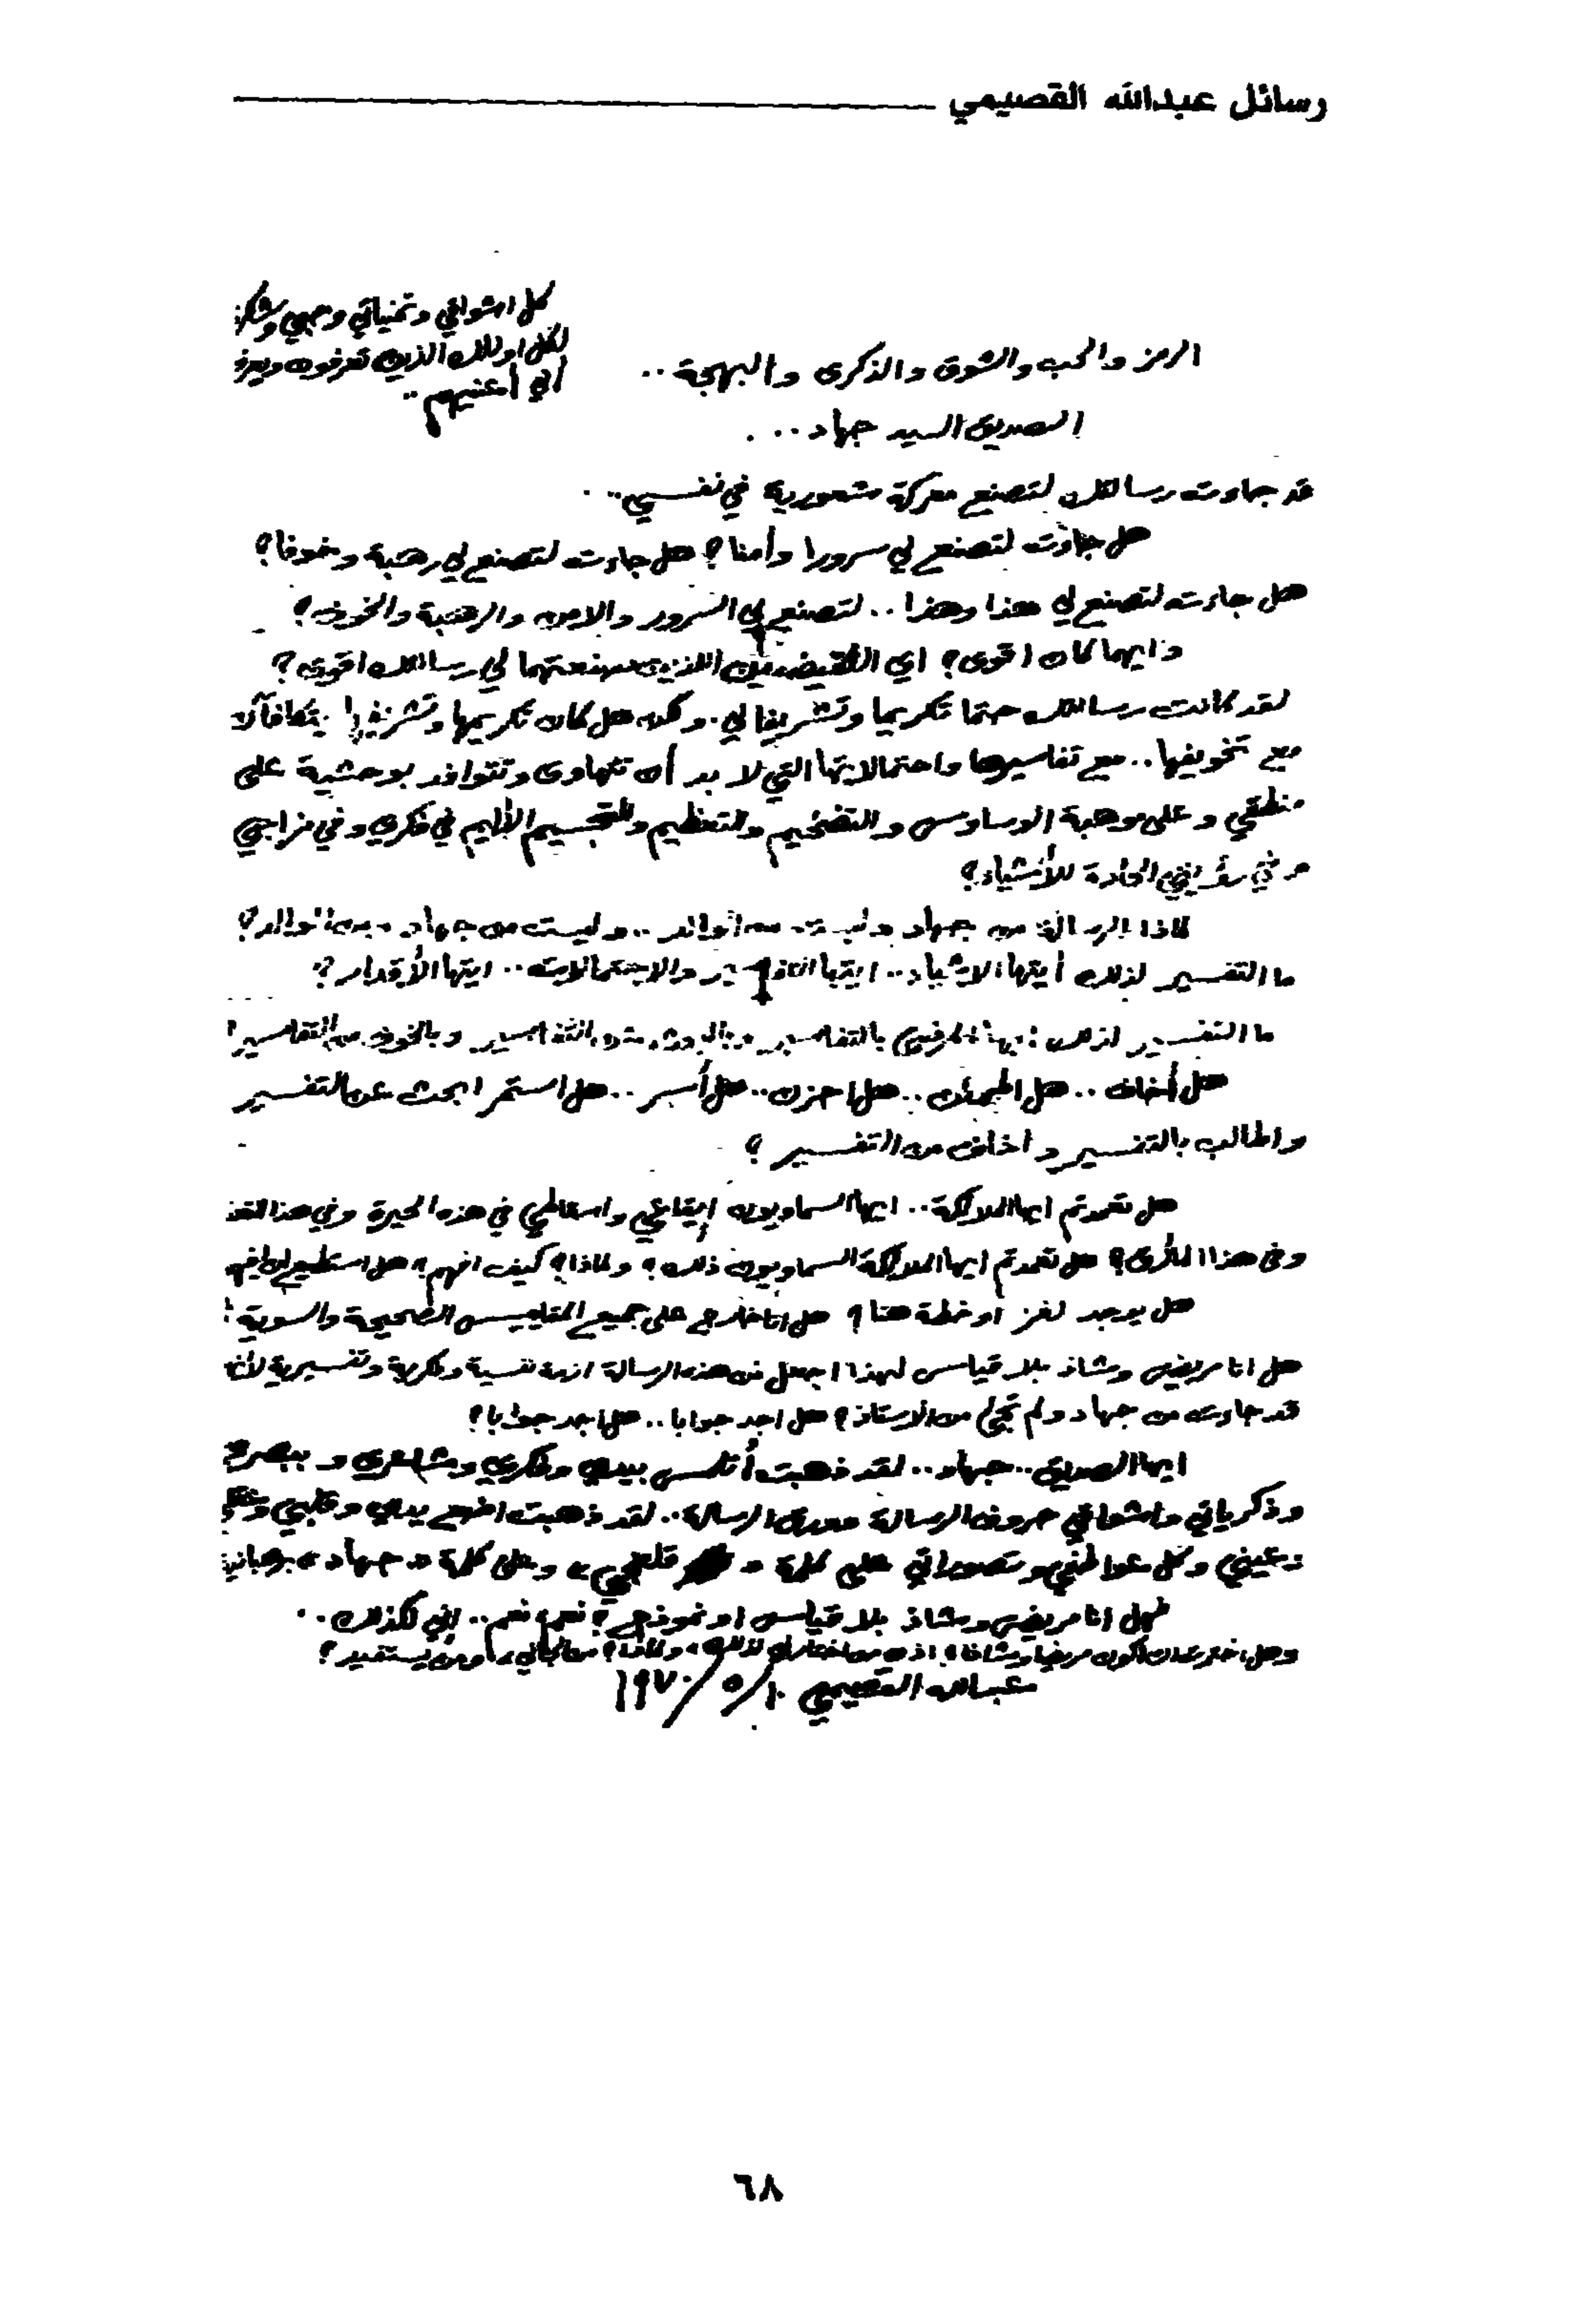 رسائل عبدالله القصيمي
كل اشواقي وتمنياتي وحبي وشكري
لكل اولئك الذين تعرفون ويعرفون
أني أعنيهم ..
الرمز والحب والشوق والذكرى والبهجة ..
الصديق السيد جهاد ...
قد جاءت رسالتك لتصنع معركة شعورية في نفسي ..
هل جاءت لتصنع لي سرورا وأمنا؟ هل جاءت لتصنع لي رهبة وخوفا؟
هل جاءت لتصنع لي هذا وهذا .. لتصنع لي السرور والامن والرهبة والخوف؟
وايهما كان اقوى؟ اي النقيضين اللذين صنعتهما لي رسالتك اقوى؟
لقد كانت رسالتك حتما تكريما وتشريفا لي. ولكن هل كان تكريمها وتشريفها يتكافآن
مع تخويفها .. مع تفاسيرها واحتمالاتها التي لا بد أن تتهاوى وتتوافد بوحشية على
منطقي وعلى موهبة الوساوس والتضخيم والتعظيم والتجسيم الأليم في فكري وفي مزاجي
وفي رؤيتي الحادة للأشياء؟
لماذا الرسالة من جهاد وليست من الوالد .. وليست من جهاد ومن الوالد؟
ما التفسير لذلك أيتها الاشياء .. ايتها التفاسير والاحتمالات .. ايتها الأقدار؟
ما التفسير لذلك ايها المرضى بالتفاسير وبالبحث عن التفاسير وبالخوف من التفاسير؟
هل أخاف .. هل اطمئن .. هل احزن .. هل أسر .. هل استمر ابحث عن التفسير
واطالب بالتفسير واخاف من التفسير؟
هل تعمدتم ايها الملائكة .. ايها السماويون إيقاعي واسقاطي في هذه الحيرة وفي هذا
وفي هذا المأزق؟ هل تعمدتم ايها الملائكة السماويون ذلك؟ ولماذا؟ كيف افهم؟ هل استطيع ان افهم
هل يوجد لغز او خطة هنا؟ هل انا خارج على جميع المقاييس الصحيحة والسوية؟
هل انا مريض وشاذ بلا قياس لهذا اجعل من هذه الرسالة ازمة نفسية وفكرية وتفسيرية لأنها
قد جاءت من جهاد ولم تجئ من الاستاذ؟ هل اجد جوابا .. هل اجد جوابا؟
ايها الصديق .. جهاد .. لقد ذهبت أتلمس بيدي وفكري ومشاعري وببصري
وذكرياتي واشواقي حروف الرسالة وورق الرسالة .. لقد ذهبت اضع يدي وقلبي
وعيني وكل عواطفي وتصوراتي على كلمة « قلعجي » وعلى كلمة « جهاد »
فهل انا مريض وشاذ بلا قياس او نموذج؟ نعم، نعم .. اني لكذلك ..
وهل اخترت ان اكون مريضا وشاذا؟ اذن من اختار لي ذلك، ولماذا؟ ومن يستفيد؟
عبدالله القصيمي ١٠/٥/١٩٧٠
٦٨